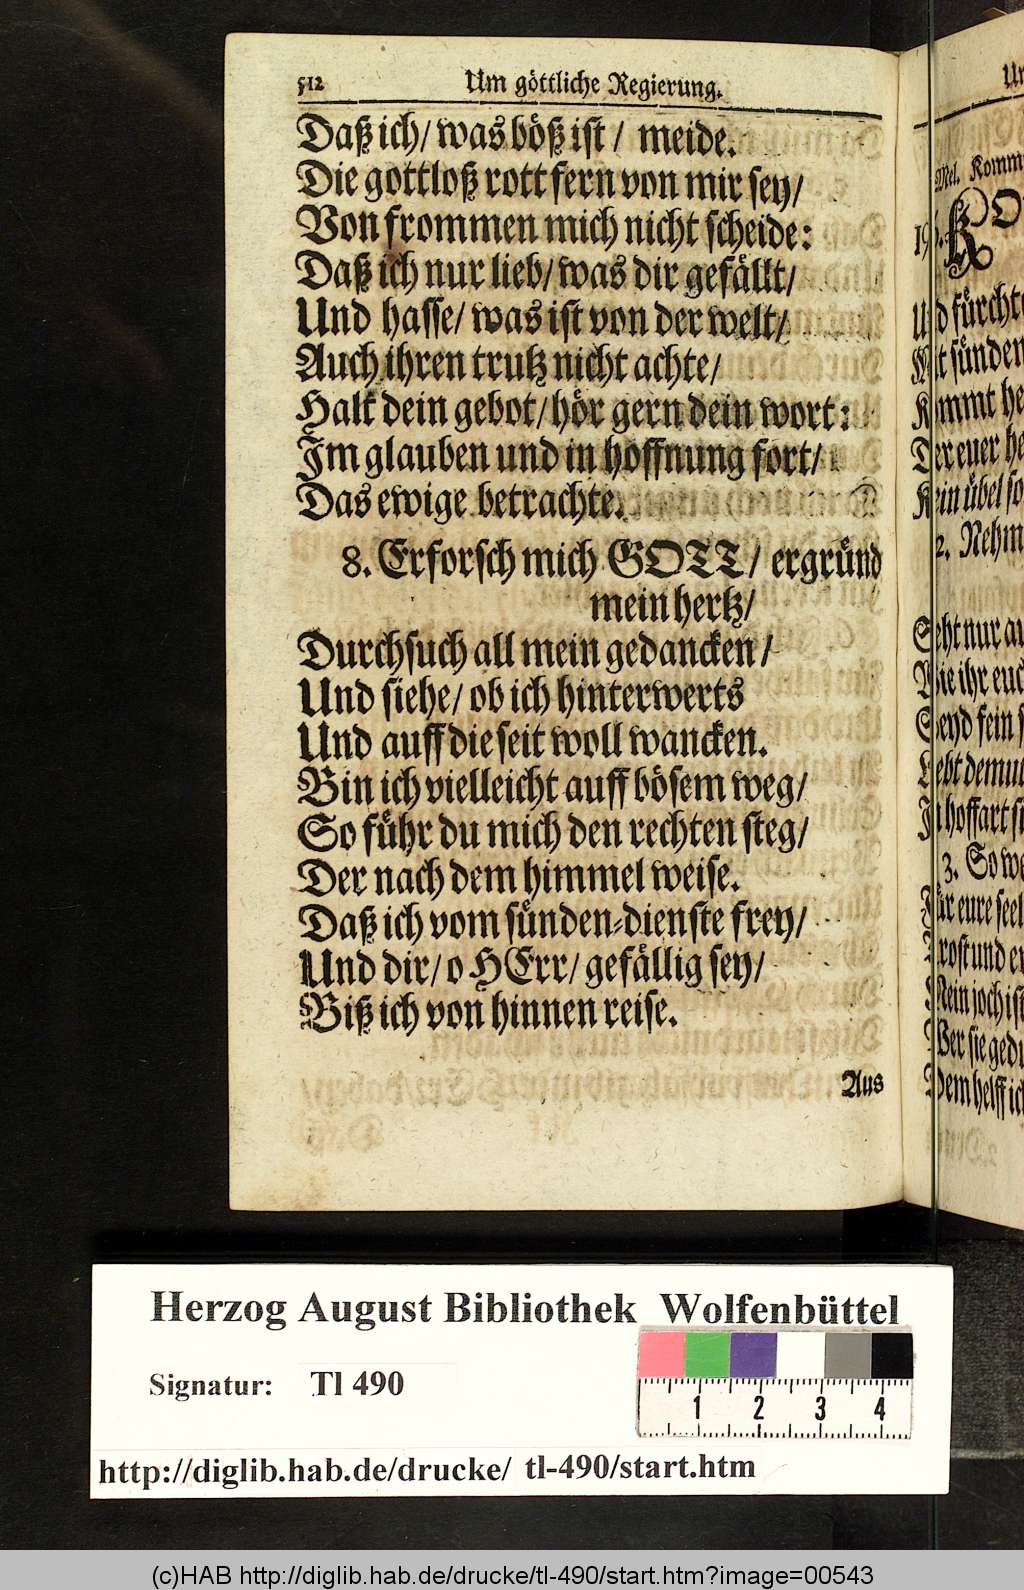 512 Um göttliche Regierung.
Daß ich/ was böß ist/ meide.
Die gottloß rott fern von mir sey/
Von frommen mich nicht scheide:
Daß ich nur lieb/ was dir gefällt/
Und hasse/ was ist von der welt/
Auch ihren trutz nicht achte/
Halt dein gebot/ hör gern dein wort:
Im glauben und in hoffnung fort/
Das ewige betrachte.
8. Erforsch mich GOTT/ ergründ
mein hertz/
Durchsuch all mein gedancken/
Und siehe/ ob ich hinterwerts
Und auff die seit woll wancken.
Bin ich vielleicht auff bösem weg/
So führ du mich den rechten steg/
Der nach dem himmel weise.
Daß ich vom sünden-dienste frey/
Und dir/ o HErr/ gefällig sey/
Biß ich von hinnen reise.
Aus
Mel. Komm
fürcht
sünden
euer he
übel so
2. Nehm
nur au
ihr euc
fein s
demu
hoffart
3. So we
eure seel
und er
joch ist
sie gedu
helff ich
Herzog August Bibliothek Wolfenbüttel
Signatur: Tl 490
1 2 3 4
http://diglib.hab.de/drucke/ tl-490/start.htm
(c)HAB http://diglib.hab.de/drucke/tl-490/start.htm?image=00543